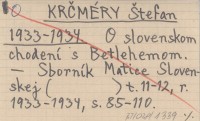 KRČMÉRY Štefan
1933-1934. O slovenskom
chodení s Betlehemom.
— Sborník Matice Sloven-
skej ( ) t. 11-12, r.
1933-1934, s. 85-110.